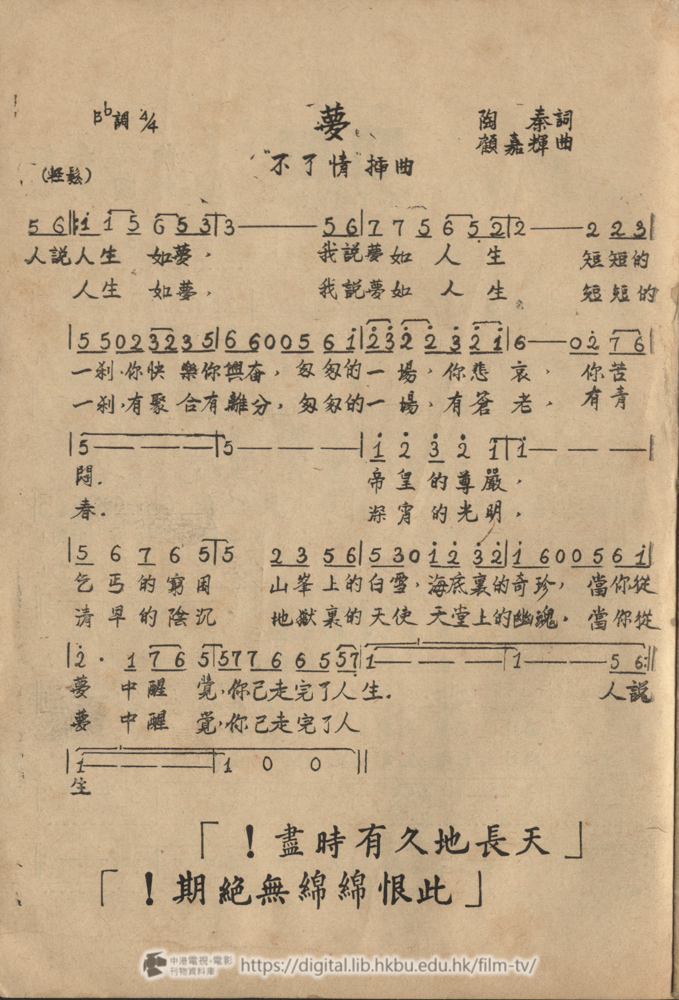 B♭調 4/4
夢
陶 秦詞
顧嘉輝曲
"不了情"揷曲
(輕鬆)
5 6‖:1 1 5 6 5 3|3——— 5 6|7 7 5 6 5 2|2—— 2 2 3|
人説人生 如夢， 我説夢如 人 生 短短的
人生 如夢， 我説夢如 人 生 短短的
|5 5 0 2 3 2 3 5|6 6 0 0 5 6 1|2 3 2 2 3 2 1|6—— 0 2 7 6|
一刹，你快 樂你興奋，匆匆的一 塲，你悲 哀， 你苦
一刹，有聚 合有離分，匆匆的一 塲，有蒼 老， 有青
|5———|5———|1 2 3 2 1|1———|
悶． 帝皇的尊嚴，
春． 深宵的光明，
|5 6 7 6 5|5 2 3 5 6|5 3 0 1 2 3 2|1 6 0 0 5 6 1|
乞丐的窮困 山峯上的白雪，海底裏的奇珍，當你從
清早的陰沉 地獄裏的天使 天堂上的幽魂．當你從
|2· 1 7 6 5|5 7 7 6 6 5 5 7|1———|1—— 5 6:‖
夢 中醒 覺，你已走完了人生． 人説
夢 中醒 覺，你已走完了人
|1———|1 0 0‖
生
「！盡時有久地長天」
「！期絕無綿綿恨此」
中港電視·電影
刊物資料庫
https://digital.lib.hkbu.edu.hk/film-tv/